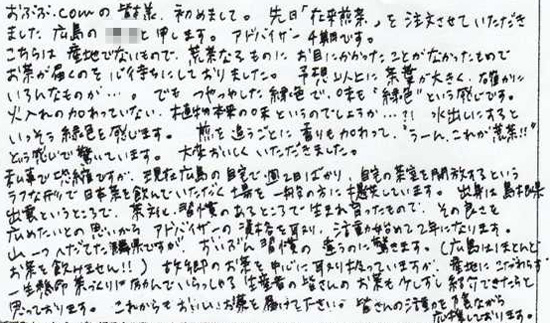 おぶぶ.comの皆様、初めまして。先日「在来煎茶」を注文させていただき
ました広島の と申します。アドバイザー4期です。
こちらは産地でないもので、荒茶なるものにお目にかかったことがなかったもので
お茶が届くのを心待ちにしておりました。予想以上に茶葉が大きく、確かに
いろんなものが…。でもつやつやした緑色で、味も"緑色"という感じです。
火入れの加わっていない、植物本来の味というのでしょうか…?! 水出しにすると
いっそう緑色を感じます。煎を追うごとに香りも加わって、"うーん、これが荒茶!!"
という感じで驚いています。大変おいしくいただきました。
私事で恐縮ですが、現在広島の自宅で週2日ばかり、自宅の茶室を開放するという
ラフな形で日本茶を飲んでいただく場を一般の方に提供しています。出身は島根県
出雲というところで、茶対し習慣のあるところで生まれ育ったもので、その良さを
広めたいとの思いからアドバイザーの資格を取り、活動始めて2年になります。
山一つへだてた隣県ですが、ずいぶん習慣の違うのに驚きます。(広島はほとんど
お茶を飲みません!!) 故郷のお茶を中心に取り扱っていますが、産地にこだわらず
一生懸命茶づくりに励んでいらっしゃる生産者の皆さんのお茶も少しずつ紹介できたらと
思っております。これからもおいしいお茶を届けてください。皆さんの活動を陰ながら
応援しております。